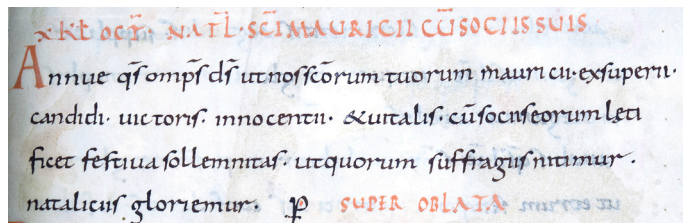 x KƗ OCT̄. NAT̄L. SC̄I MAURICII CŪ SOCIIS SUIS
Annue q̄s omp̄s d̄s ut nos sc̄orum tuorum mauricii · exsuperii ·
candidi · uictoris · innocentii · & uitalis · cū sociis eorum leti
ficet festiua sollemnitas · ut quorum suffragiis nitimur ·
nataliciis gloriemur · P̄ SUPER OBLATA